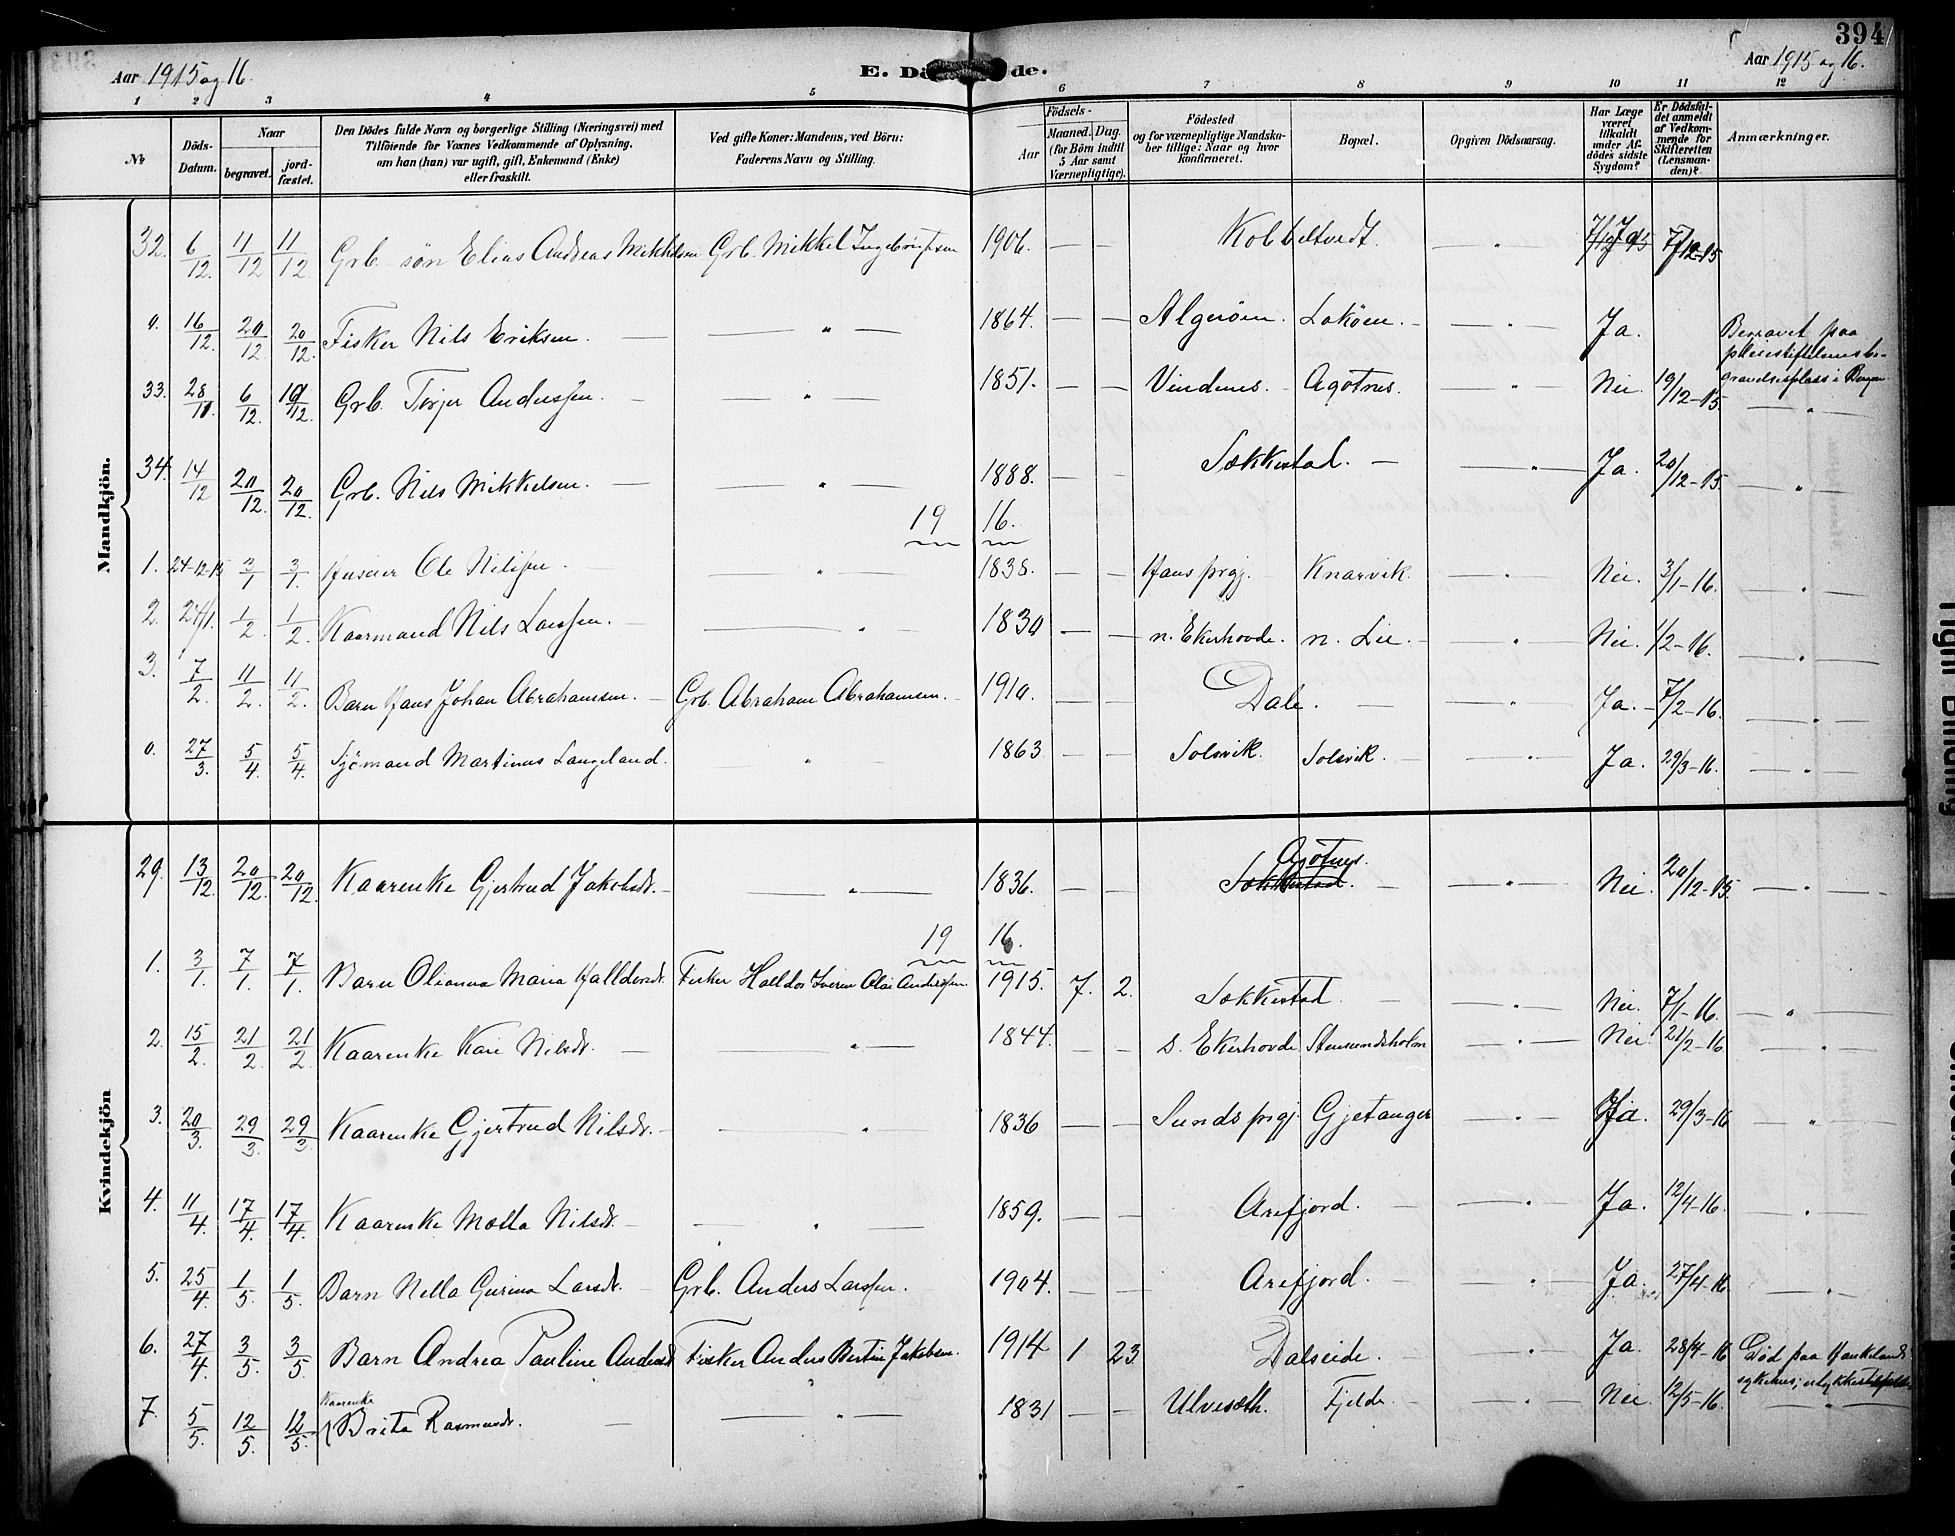 394
Aar 1915 og 16.
E. Dö de.
Aar 1915 og 16.
1 2 3 4 5 6 7 8 9 10 11 12
No
Döds-Datum.
Naar
begravet.
jord-fæstet.
Den Dödes fulde Navn og borgerlige Stilling (Næringsvei) med
Tilföiende for Voxnes Vedkommende af Oplysning,
om han (han) var ugift, gift, Enkemand (Enke)
eller fraskilt.
Ved gifte Koner: Mandens, ved Börn:
Faderens Navn og Stilling.
Födsels-
Aar
Maaned. Dag.
(for Börn indtil
5 Aar samt
Værnepligtige).
Födested
og for værnepligtige Mandska-
ber tillige: Naar og hvor
konfirmeret.
Bopæl.
Opgiven Dödsaarsag.
Har Læge
været
tilkaldt
under Af-
dödes sidste
Sygdom?
Er Dödsfal-
det anmeldt
af Vedkom-
mende for
Skifteretten
(Lensman-
den)?
Anmærkninger.
Mandkjön.
32. 6/12. 11/12 11/12 Grb. sön Elias Andreas Mikkelsen Grb. Mikkel Ingebrigtsen 1906. — — Kobbeltvedt. — " — Ja 7/12-15
0. 16/12. 20/12 20/12. Fisker Nils Eriksen. — — " — 1864. — — Algeröen. Loköen. — " — Ja. Begravet paa
pleiestiftelsens be-
gravelsesplass i Bergen
33. 28/11. 6/12. 10/12. Grb. Torjer Anderssen. — — " — 1851. — — Vindenes. Agotnes. — " — Nei. 19/12-15. — " —
34. 14/12 20/12. 20/12. Grb. Nils Mikkelsen. — — " — 1888. — — Sekkestad. — " — Ja. 20/12-15. — " —
19 16.
1. 24-12-15 3/1 3/1. Huseier Ole Nilssen. — " — 1838. — — Haus prgj. Knarvik. — " — Nei. 3/1-16. — " —
2. 24/1. 1/2. 1/2. Kaarmand Nils Larssen. — — " — 1830 — — n. Ekerhovde. n. Lie. — " — Nei. 1/2-16. — " —
3. 7/2. 11/2. 11/2. Barn Hans Johan Abrahamsen. — Grb. Abraham Abrahamsen. — 1910. — — Dale. — " — Ja. 7/2-16. — " —
0. 27/3. 5/4 5/4 Sjömand Martinus Langeland. — " — 1863 — — Solsvik. Solsvik. — " — Ja. 29/3-16. — " —
Kvindekjön
29. 13/12. 20/12. 20/12. Kaarenke Gjertrud Jakobsdt. — — " — 1836. — — Sekkestad. Agötnes. — " — Nei. 20/12-15. — " —
19 16.
1. 3/1. 7/1. 7/1. Barn Olianna Maria Halldorsdt. Fisker Halldor Iverin Olai Anderssen 1915. 7. 2. Sekkestad. — " — Nei. 7/1-16. — " —
2. 15/2. 21/2. 21/2. Kaarenke Kari Nilsdt. — — " — 1844. — — s. Ekerhovde Stensundsholm — " — Nei. 21/2-16. — " —
3. 20/3. 29/3. 29/3 Kaarenke Gjertrud Nilsdt. — — " — 1836 — — Sunds prgj. Gjetanger — " — Ja. 29/3-16 — " —
4. 11/4. 17/4. 17/4. Kaarenke Malla Nilsdt. — — " — 1859. — — Arefjord. — " — Ja. 12/4-16. — " —
5. 25/4. 1/5. 1/5. Barn Nella Gurina Larsdt. — Grb. Anders Larssen. 1904. — — Arefjord. — " — Ja. 27/4-16 — " —
6. 27/4. 3/5. 3/5. Barn Andrea Pauline Andersdt Fisker Anders Bertin Jakobsen. 1914 1 23 Dalseide. — " — Ja. 28/4-16 Död paa Haukelands
sykehus;
7. 5/5. 12/5. 12/5. Kaarenke Brita Rasmusdt. — — " — 1831 — — Ulveseth. Fjelde. — " — Nei. 12/5-16. — " —
Tight Binding